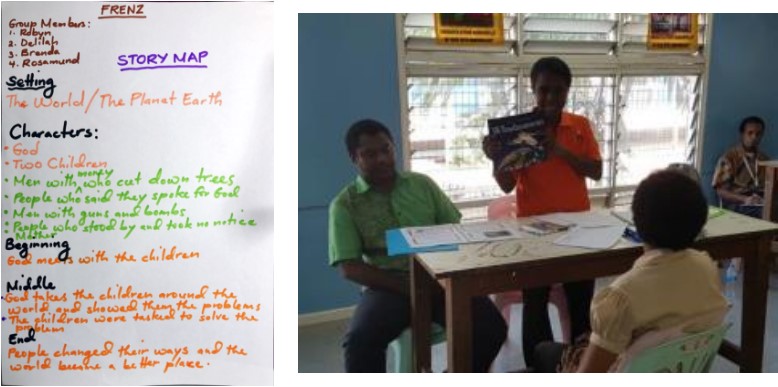 FRENZ
Group Members:
1. Robyn
2. Delilah
3. Brenda
4. Rosamund
STORY MAP
Setting
The World/The Planet Earth
Characters:
• God
• Two Children
• Men with money who cut down trees
• People who said they spoke for God
• Men with guns and bombs
• People who stood by and took no notice
Mother
Beginning
God meets with the children
Middle
• God takes the children around the
world and showed them the problems
• The children were tasked to solve the
problem
End
People changed their ways and the
world became a better place.